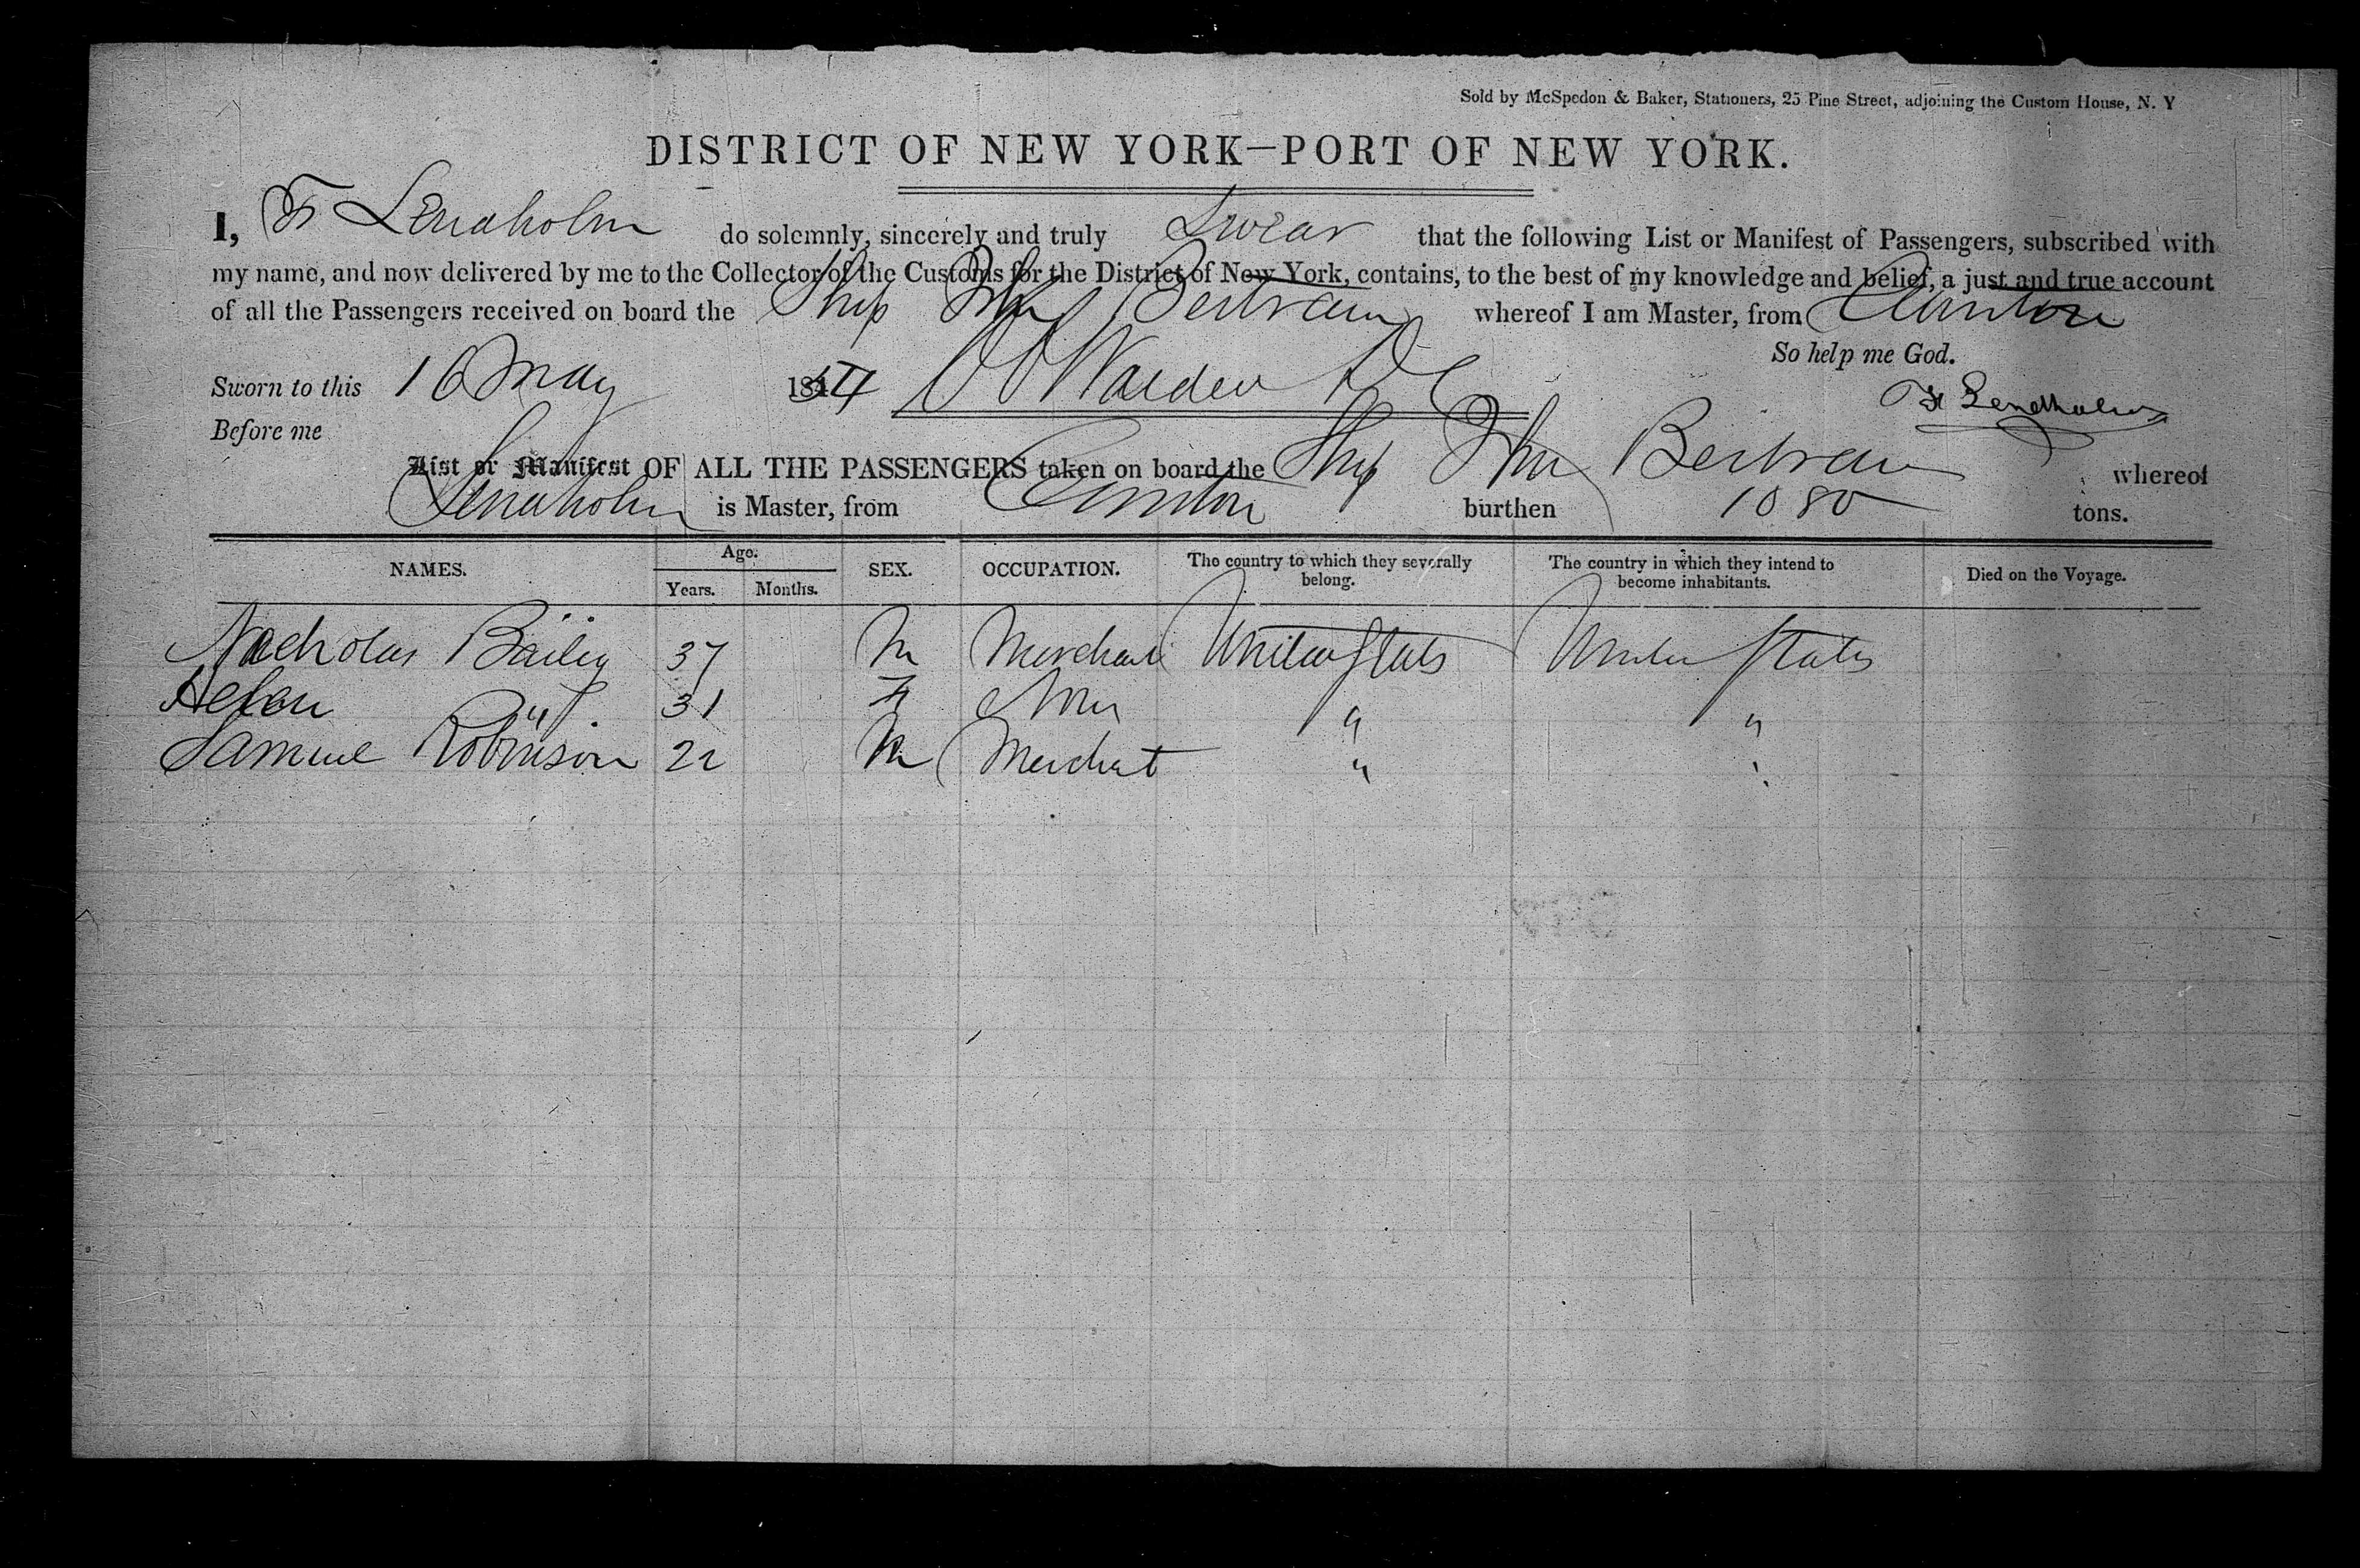 Sold by McSpedon & Baker, Stationers, 25 Pine Street, adjoining the Custom House, N. Y
DISTRICT OF NEW YORK—PORT OF NEW YORK.
I, F Lendholm do solemnly, sincerely and truly Swear that the following List or Manifest of Passengers, subscribed with
my name, and now delivered by me to the Collector of the Customs for the District of New York, contains, to the best of my knowledge and belief, a just and true account
of all the Passengers received on board the Ship Jhn Bertram whereof I am Master, from Canton
So help me God.
Sworn to this 16 May 1854 Warden
F Lendholm
Before me
List or Manifest OF ALL THE PASSENGERS taken on board the Ship Jhn Bertram whereof
Lendholm is Master, from Canton burthen 1080 tons.
NAMES. Age. Years. Months. SEX. OCCUPATION. The country to which they severally belong. The country in which they intend to become inhabitants. Died on the Voyage.
Nicholas Bailey 37 M Merchant United States United States
Helen " 31 F None " "
Samuel Robinson 22 M Merchant " "